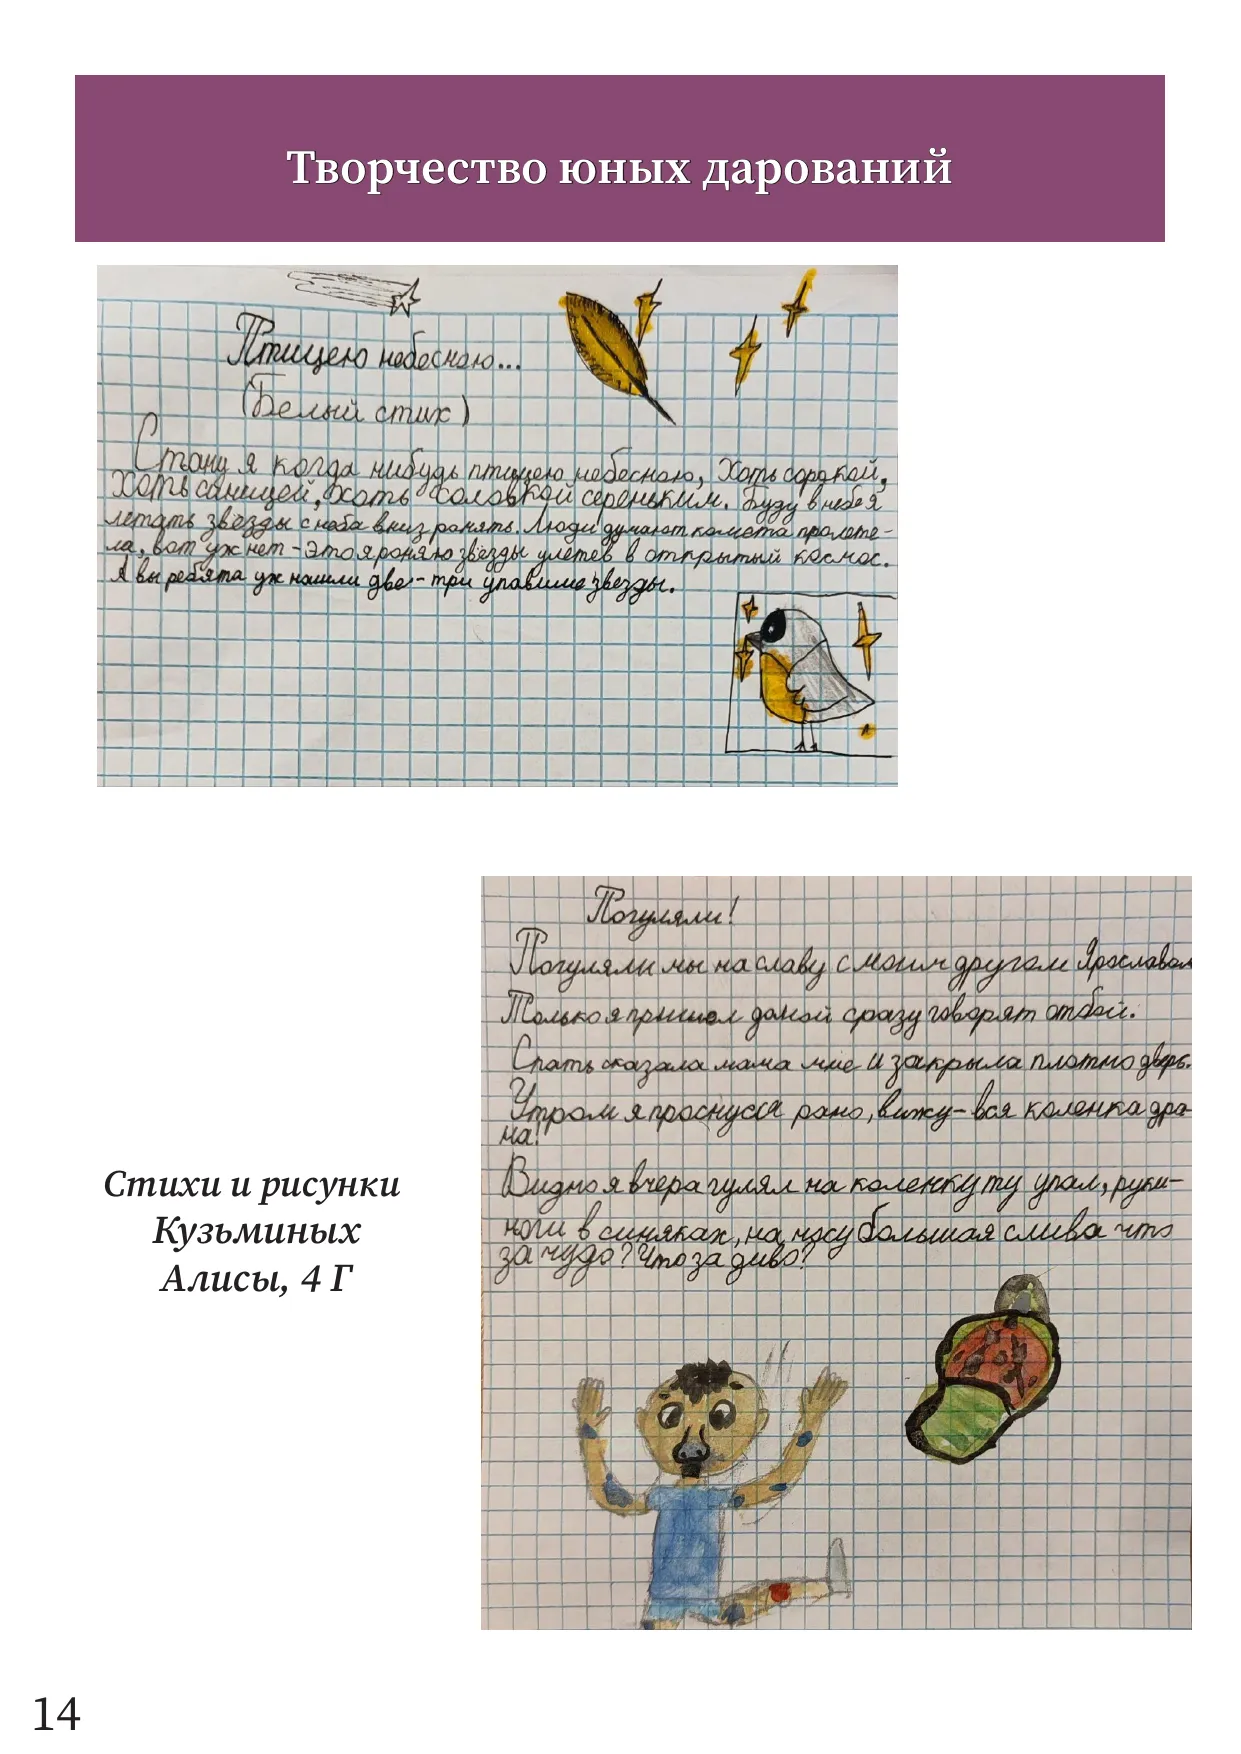 Творчество юных дарований
Птицею небесною...
(Белый стих)
Стану я когда нибудь птицею небесною, Хоть сорокой,
Хоть синицей, хоть соловкой сереньким. Буду в небе я
летать звёзды с неба вниз ронять. Люди думают комета пролете-
ла, вот уж нет - это я роняю звёзды улетев в открытый космос.
А вы ребята уж нашли две - три упавшие звезды.
Погуляли!
Погуляли мы на славу с моим другом Ярославом
Только я пришол домой сразу говорят отбой.
Спать сказала мама мне и закрыла плотно дверь.
Утром я проснусся рано, вижу - вся коленка дра-
на!
Видно я вчера гулял на коленку ту упал, руки-
ноги в синяках, на носу большая слива что
за чудо? Что за диво?
Стихи и рисунки
Кузьминых
Алисы, 4 Г
14